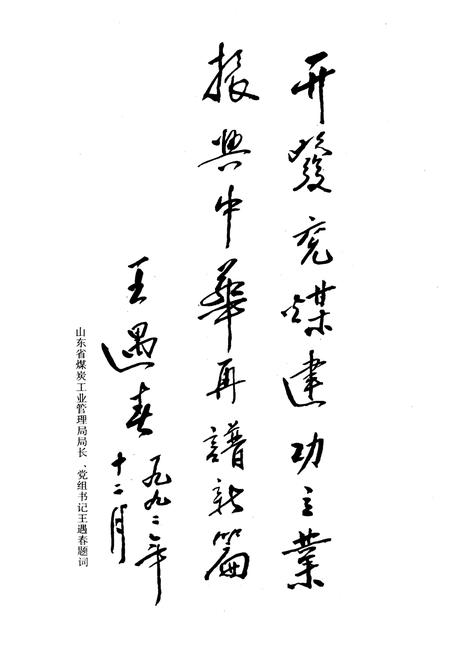 开發兖煤建功立業
振興中華再譜新篇
王遇春
一九九二年
十二月
山东省煤炭工业管理局局长、党组书记王遇春题词